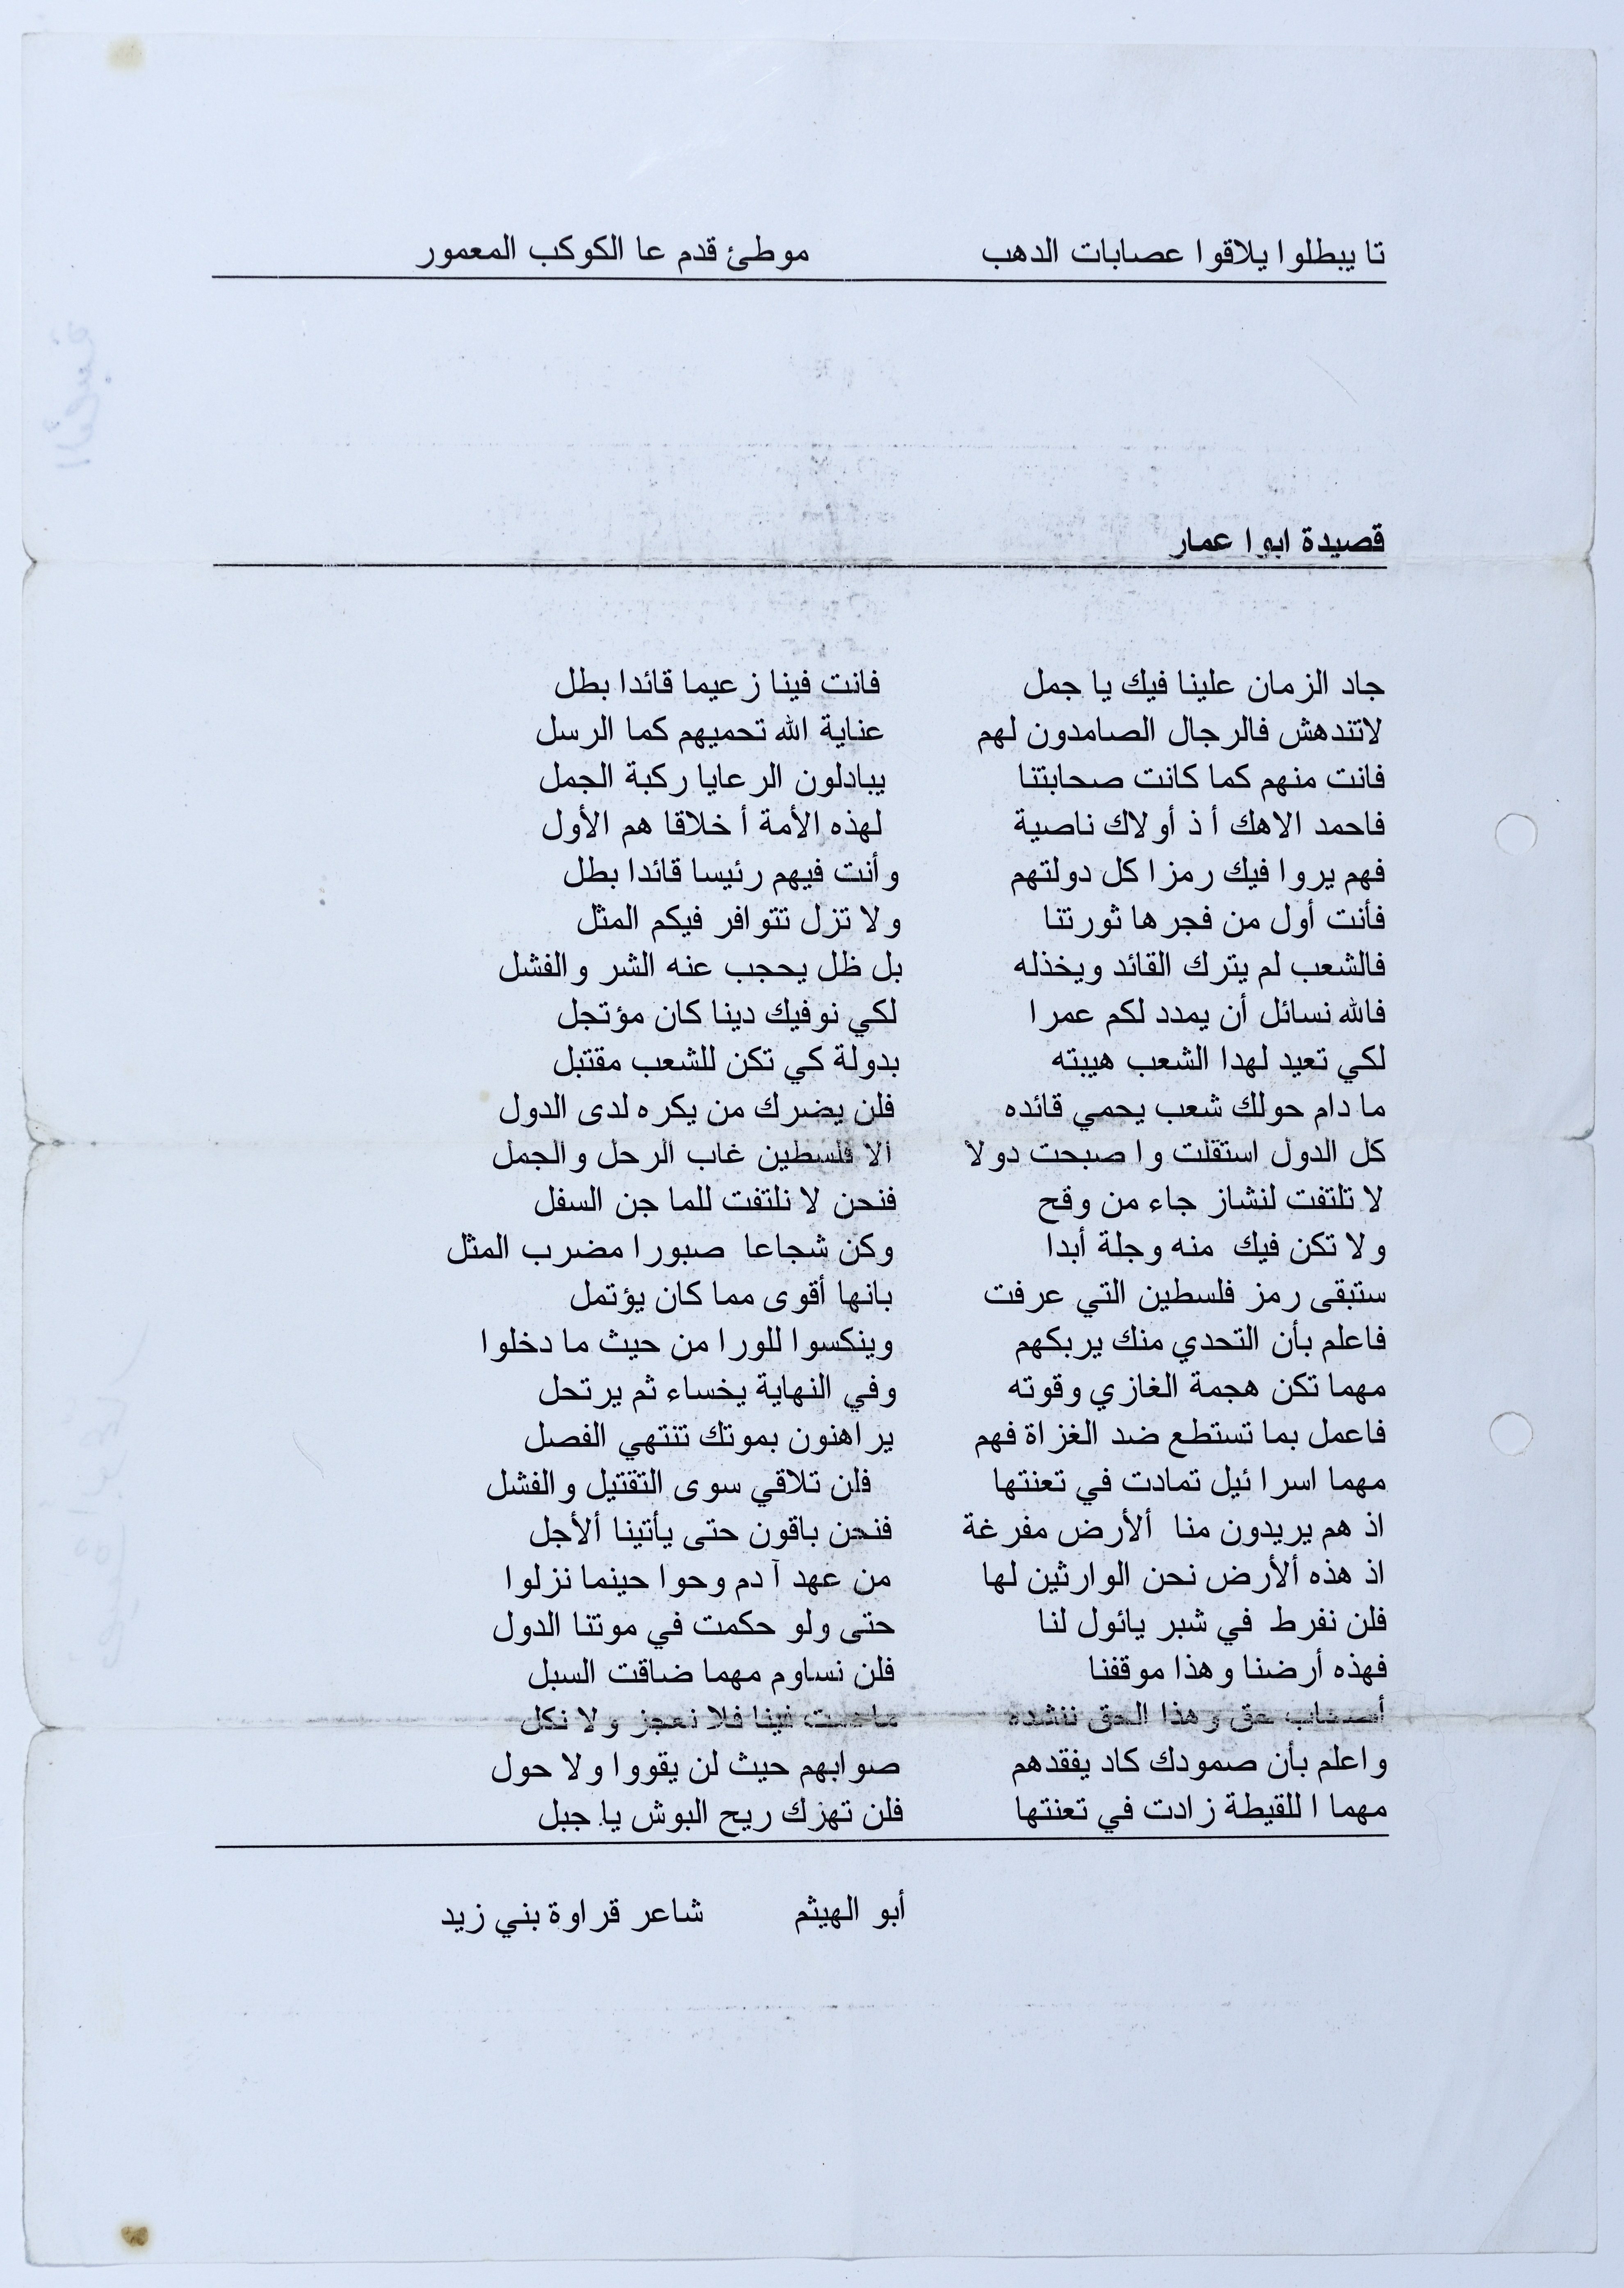 تا يبطلوا يلاقوا عصابات الدهب موطئ قدم عا الكوكب المعمور
قصيدة ابوا عمار
جاد الزمان علينا فيك يا جمل فانت فينا زعيما قائدا بطل
لاتندهش فالرجال الصامدون لهم عناية الله تحميهم كما الرسل
فانت منهم كما كانت صحابتنا يبادلون الرعايا ركبة الجمل
فاحمد الاهك أذ أولاك ناصية لهذه الأمة أخلاقا هم الأول
فهم يروا فيك رمزا كل دولتهم وأنت فيهم رئيسا قائدا بطل
فأنت أول من فجرها ثورتنا ولا تزل تتوافر فيكم المثل
فالشعب لم يترك القائد ويخذله بل ظل يحجب عنه الشر والفشل
فالله نسائل أن يمدد لكم عمرا لكي نوفيك دينا كان مؤتجل
لكي تعيد لهدا الشعب هيبته بدولة كي تكن للشعب مقتبل
ما دام حولك شعب يحمي قائده فلن يضرك من يكره لدى الدول
كل الدول استقلت وا صبحت دولا الا فلسطين غاب الرحل والجمل
لا تلتفت لنشاز جاء من وقح فنحن لا نلتفت للما جن السفل
ولا تكن فيك منه وجلة أبدا وكن شجاعا صبورا مضرب المثل
ستبقى رمز فلسطين التي عرفت بانها أقوى مما كان يؤتمل
فاعلم بأن التحدي منك يربكهم وينكسوا للورا من حيث ما دخلوا
مهما تكن هجمة الغازي وقوته وفي النهاية يخساء ثم يرتحل
فاعمل بما تستطع ضد الغزاة فهم يراهنون بموتك تنتهي الفصل
مهما اسرائيل تمادت في تعنتها فلن تلاقي سوى التقتيل والفشل
اذ هم يريدون منا ألأرض مفرغة فنحن باقون حتى يأتينا ألأجل
اذ هذه ألأرض نحن الوارثين لها من عهد آدم وحوا حينما نزلوا
فلن نفرط في شبر يائول لنا حتى ولو حكمت في موتنا الدول
فهذه أرضنا وهذا موقفنا فلن نساوم مهما ضاقت السبل
أصحاب حق وهذا الحق ننشده فينا فلا نعجز ولا نكل
واعلم بأن صمودك كاد يفقدهم صوابهم حيث لن يقووا ولا حول
مهما اللقيطة زادت في تعنتها فلن تهزك ريح البوش يا جبل
أبو الهيثم شاعر قراوة بني زيد